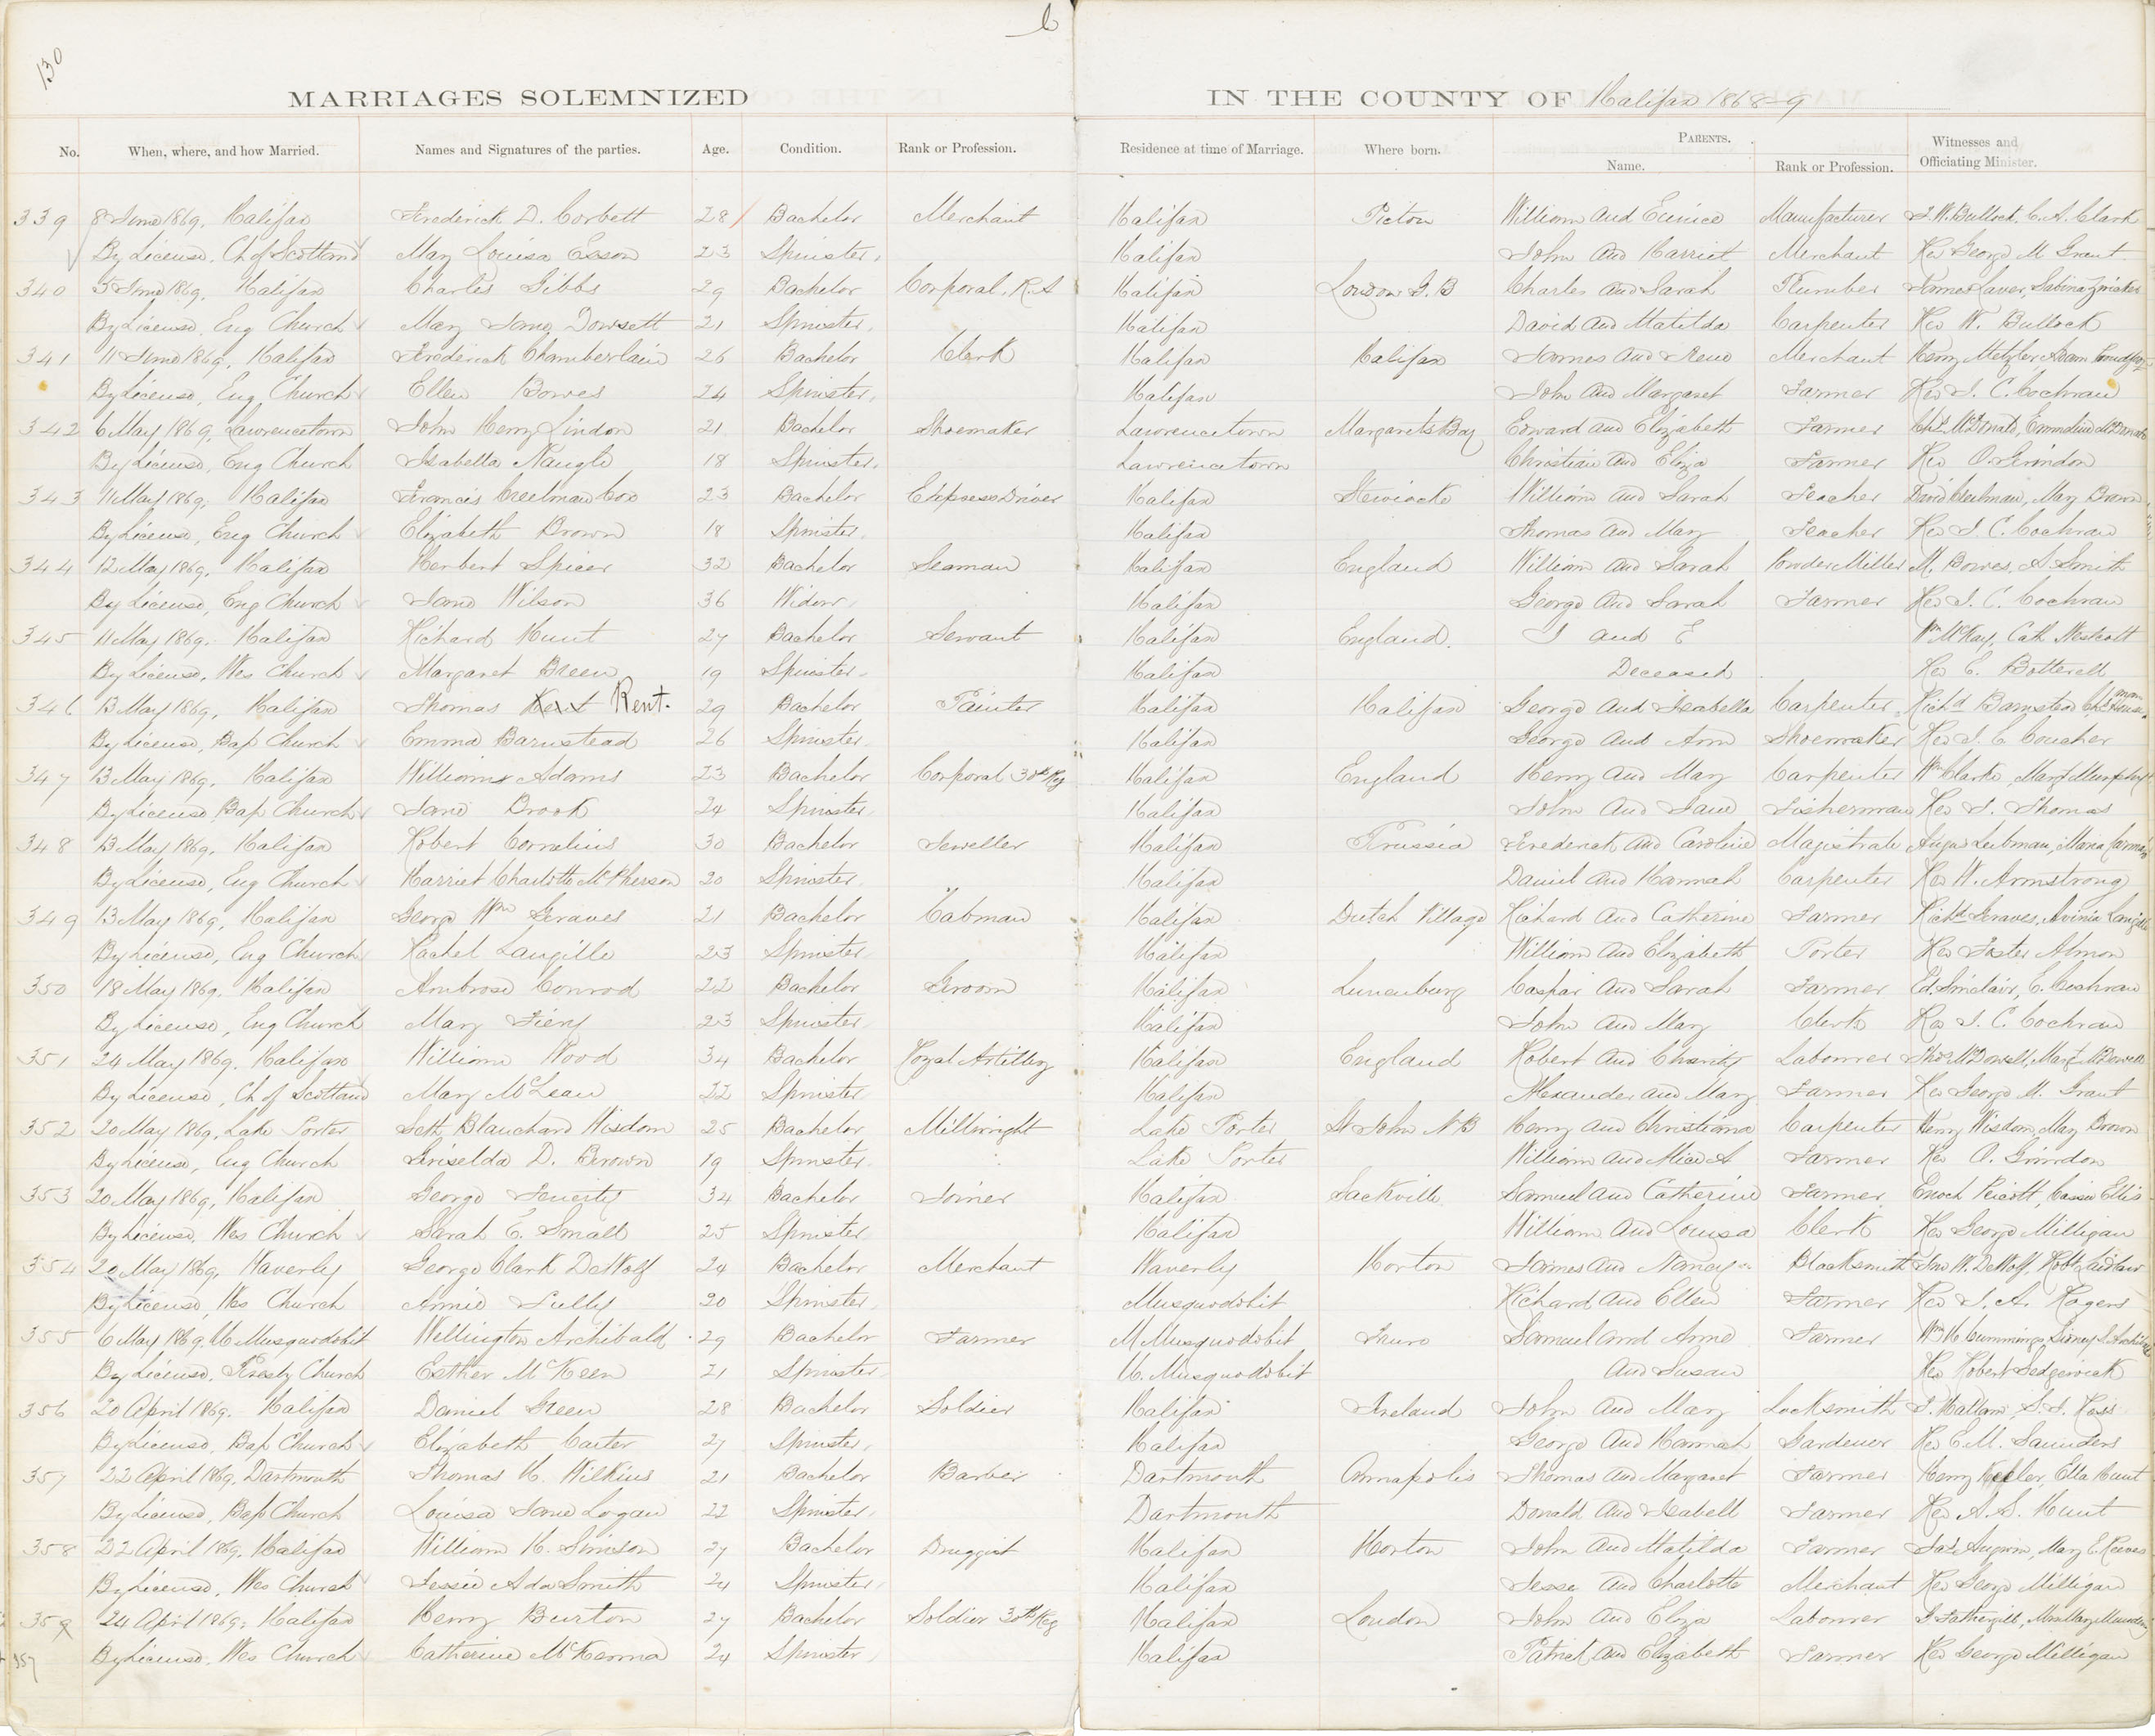 130
6
MARRIAGES SOLEMNIZED IN THE COUNTY OF Halifax 1868-9
No. When, where, and how Married. Names and Signatures of the parties. Age. Condition. Rank or Profession. Residence at time of Marriage. Where born. PARENTS. Name. Rank or Profession. Witnesses and Officiating Minister.
339 8 June 1869. Halifax Frederick D. Corbett 28 Bachelor Merchant Halifax Picton William and Eunice Manufacturer J. W. Bullock, C. A. Clark
By License, Ch of Scotland Mary Louisa Esson 23 Spinster Halifax John and Harriet Merchant Rev George M Grant
340 5 June 1869, Halifax Charles Gibbs 29 Bachelor Corporal, R.A Halifax London G.B Charles and Sarah Plumber James Laver, Sabina
By License, Eng Church Mary Jane Dowsett 21 Spinster Halifax David and Matilda Carpenter Rev W. Bullock
341 11 June 1869, Halifax Frederick Chamberlain 26 Bachelor Clerk Halifax Halifax James and Merchant Henry Metzler Adam
By License, Eng Church Ellen Bowes 24 Spinster Halifax John and Margaret Farmer Rev J. C. Cochran
342 6 May 1869, Lawrencetown John Henry Lindon 21 Bachelor Shoemaker Lawrencetown Margarets Bay Edward and Elizabeth Farmer Chs. McDonald, Emmeline McDonald
By License, Eng Church Isabella Naugle 18 Spinster Lawrencetown Christian and Eliza Farmer Rev O. Grindon
343 11 May 1869, Halifax Francis Creelman Cox 23 Bachelor Express Driver Halifax Stewiacke William and Sarah Teacher David Creelman, Mary Brown
By License, Eng Church Elizabeth Brown 18 Spinster Halifax Thomas and Mary Teacher Rev J. C. Cochran
344 12 May 1869, Halifax Herbert Spicer 32 Bachelor Seaman Halifax England William and Sarah Powder Miller M. Bowes, A. Smith
By License, Eng Church Jane Wilson 36 Widow Halifax George and Sarah Farmer Rev J. C. Cochran
345 11 May 1869. Halifax Richard Hunt 27 Bachelor Servant Halifax England. J and E Wm McKay, Cath Westcott
By License, Wes Church Margaret Breen 19 Spinster Halifax Deceased Rev E. Botterell
346 13 May 1869, Halifax Thomas Kent Rent. 29 Bachelor Painter Halifax Halifax George and Isabella Carpenter Richd Barnstead
By License, Bap Church Emma Barnstead 26 Spinster Halifax George and Ann Shoemaker Rev J. E. Goucher
347 13 May 1869, Halifax Williams Adams 23 Bachelor Corporal 30th Reg Halifax England Henry and Mary Carpenter Wm Clarke, Margt Murphy
By License, Bap Church Jane Brook 24 Spinster Halifax John and Jane Fisherman Rev J. Thomas
348 13 May 1869, Halifax Robert Cornelius 30 Bachelor Jeweller Halifax Prussia Frederick and Caroline Magistrate
By License, Eng Church Harriet Charlotte McPherson 20 Spinster Halifax Daniel and Hannah Carpenter Rev W. Armstrong
349 13 May 1869, Halifax George Wm Graves 21 Bachelor Cabman Halifax Dutch Village Richard and Catherine Farmer Richd Graves, Avinia Langille
By License, Eng Church Rachel Langille 23 Spinster Halifax William and Elizabeth Porter Rev Foster Almon
350 18 May 1869. Halifax Ambrose Conrod 22 Bachelor Groom Halifax Lunenburg Caspar and Sarah Farmer Ed. Sinclair, E. Cochran
By License, Eng Church Mary 23 Spinster Halifax John and Mary Clerk Rev J. C. Cochran
351 24 May 1869. Halifax William Wood 34 Bachelor Royal Artillery Halifax England Robert and Charity Labourer Thos McDowell, Margt McDowell
By License, Ch of Scotland Mary McLean 22 Spinster Halifax Alexander and Mary Farmer Rev George M. Grant
352 20 May 1869, Lake Porter Seth Blanchard Wisdom 25 Bachelor Millwright Lake Porter St John NB Henry and Christiana Carpenter Henry Wisdom, Mary Brown
By License, Eng Church Griselda D. Brown 19 Spinster Lake Porter William and Alice A Farmer Rev O. Grindon
353 20 May 1869, Halifax George 34 Bachelor Joiner Halifax Sackville Samuel and Catherine Farmer Enoch
By License, Wes Church Sarah E. Small 25 Spinster Halifax William and Louisa Clerk Rev George Milligan
354 20 May 1869, Waverly George Clark DeWolf 24 Bachelor Merchant Waverly Horton James and Nancy Blacksmith Jno W. DeWolf, Robt Laidlaw
By License, Wes Church Annie Tully 20 Spinster Musquodobit Richard and Ellen Farmer Rev J. A. Rogers
355 6 May 1869, M Musquodobit Wellington Archibald 29 Bachelor Farmer M Musquodobit Truro Samuel and Anne Farmer Wm H Cummings, Sidney S. Archibald
By License, Presby Church Esther McKeen 21 Spinster M. Musquodobit and Susan Rev Robert Sedgewick
356 20 April 1869. Halifax Daniel Green 28 Bachelor Soldier Halifax Ireland John and Mary Locksmith J. Hallam, S. J. Ross
By License, Bap Church Elizabeth Carter 27 Spinster Halifax George and Hannah Gardener Rev E. M. Saunders
357 22 April 1869, Dartmouth Thomas H. Wilkins 21 Bachelor Barber Dartmouth Annapolis Thomas and Margaret Farmer Henry Keeler, Ella Hunt
By License, Bap Church Louisa Jane Logan 22 Spinster Dartmouth Donald and Isabell Farmer Rev A. S. Hunt
358 22 April 1869, Halifax William H. Simson 27 Bachelor Druggist Halifax Horton John and Matilda Farmer Jas. Angwin, Mary E. Reeves
By License, Wes Church Jessie Ada Smith 24 Spinster Halifax Jesse and Charlotte Merchant Rev George Milligan
359 24 April 1869, Halifax Henry Burton 27 Bachelor Soldier 30th Reg Halifax London John and Eliza Labourer J. Fathergill, Mrs Mary
357 By License, Wes Church Catherine McKenna 24 Spinster Halifax Patrick and Elizabeth Farmer Rev George Milligan